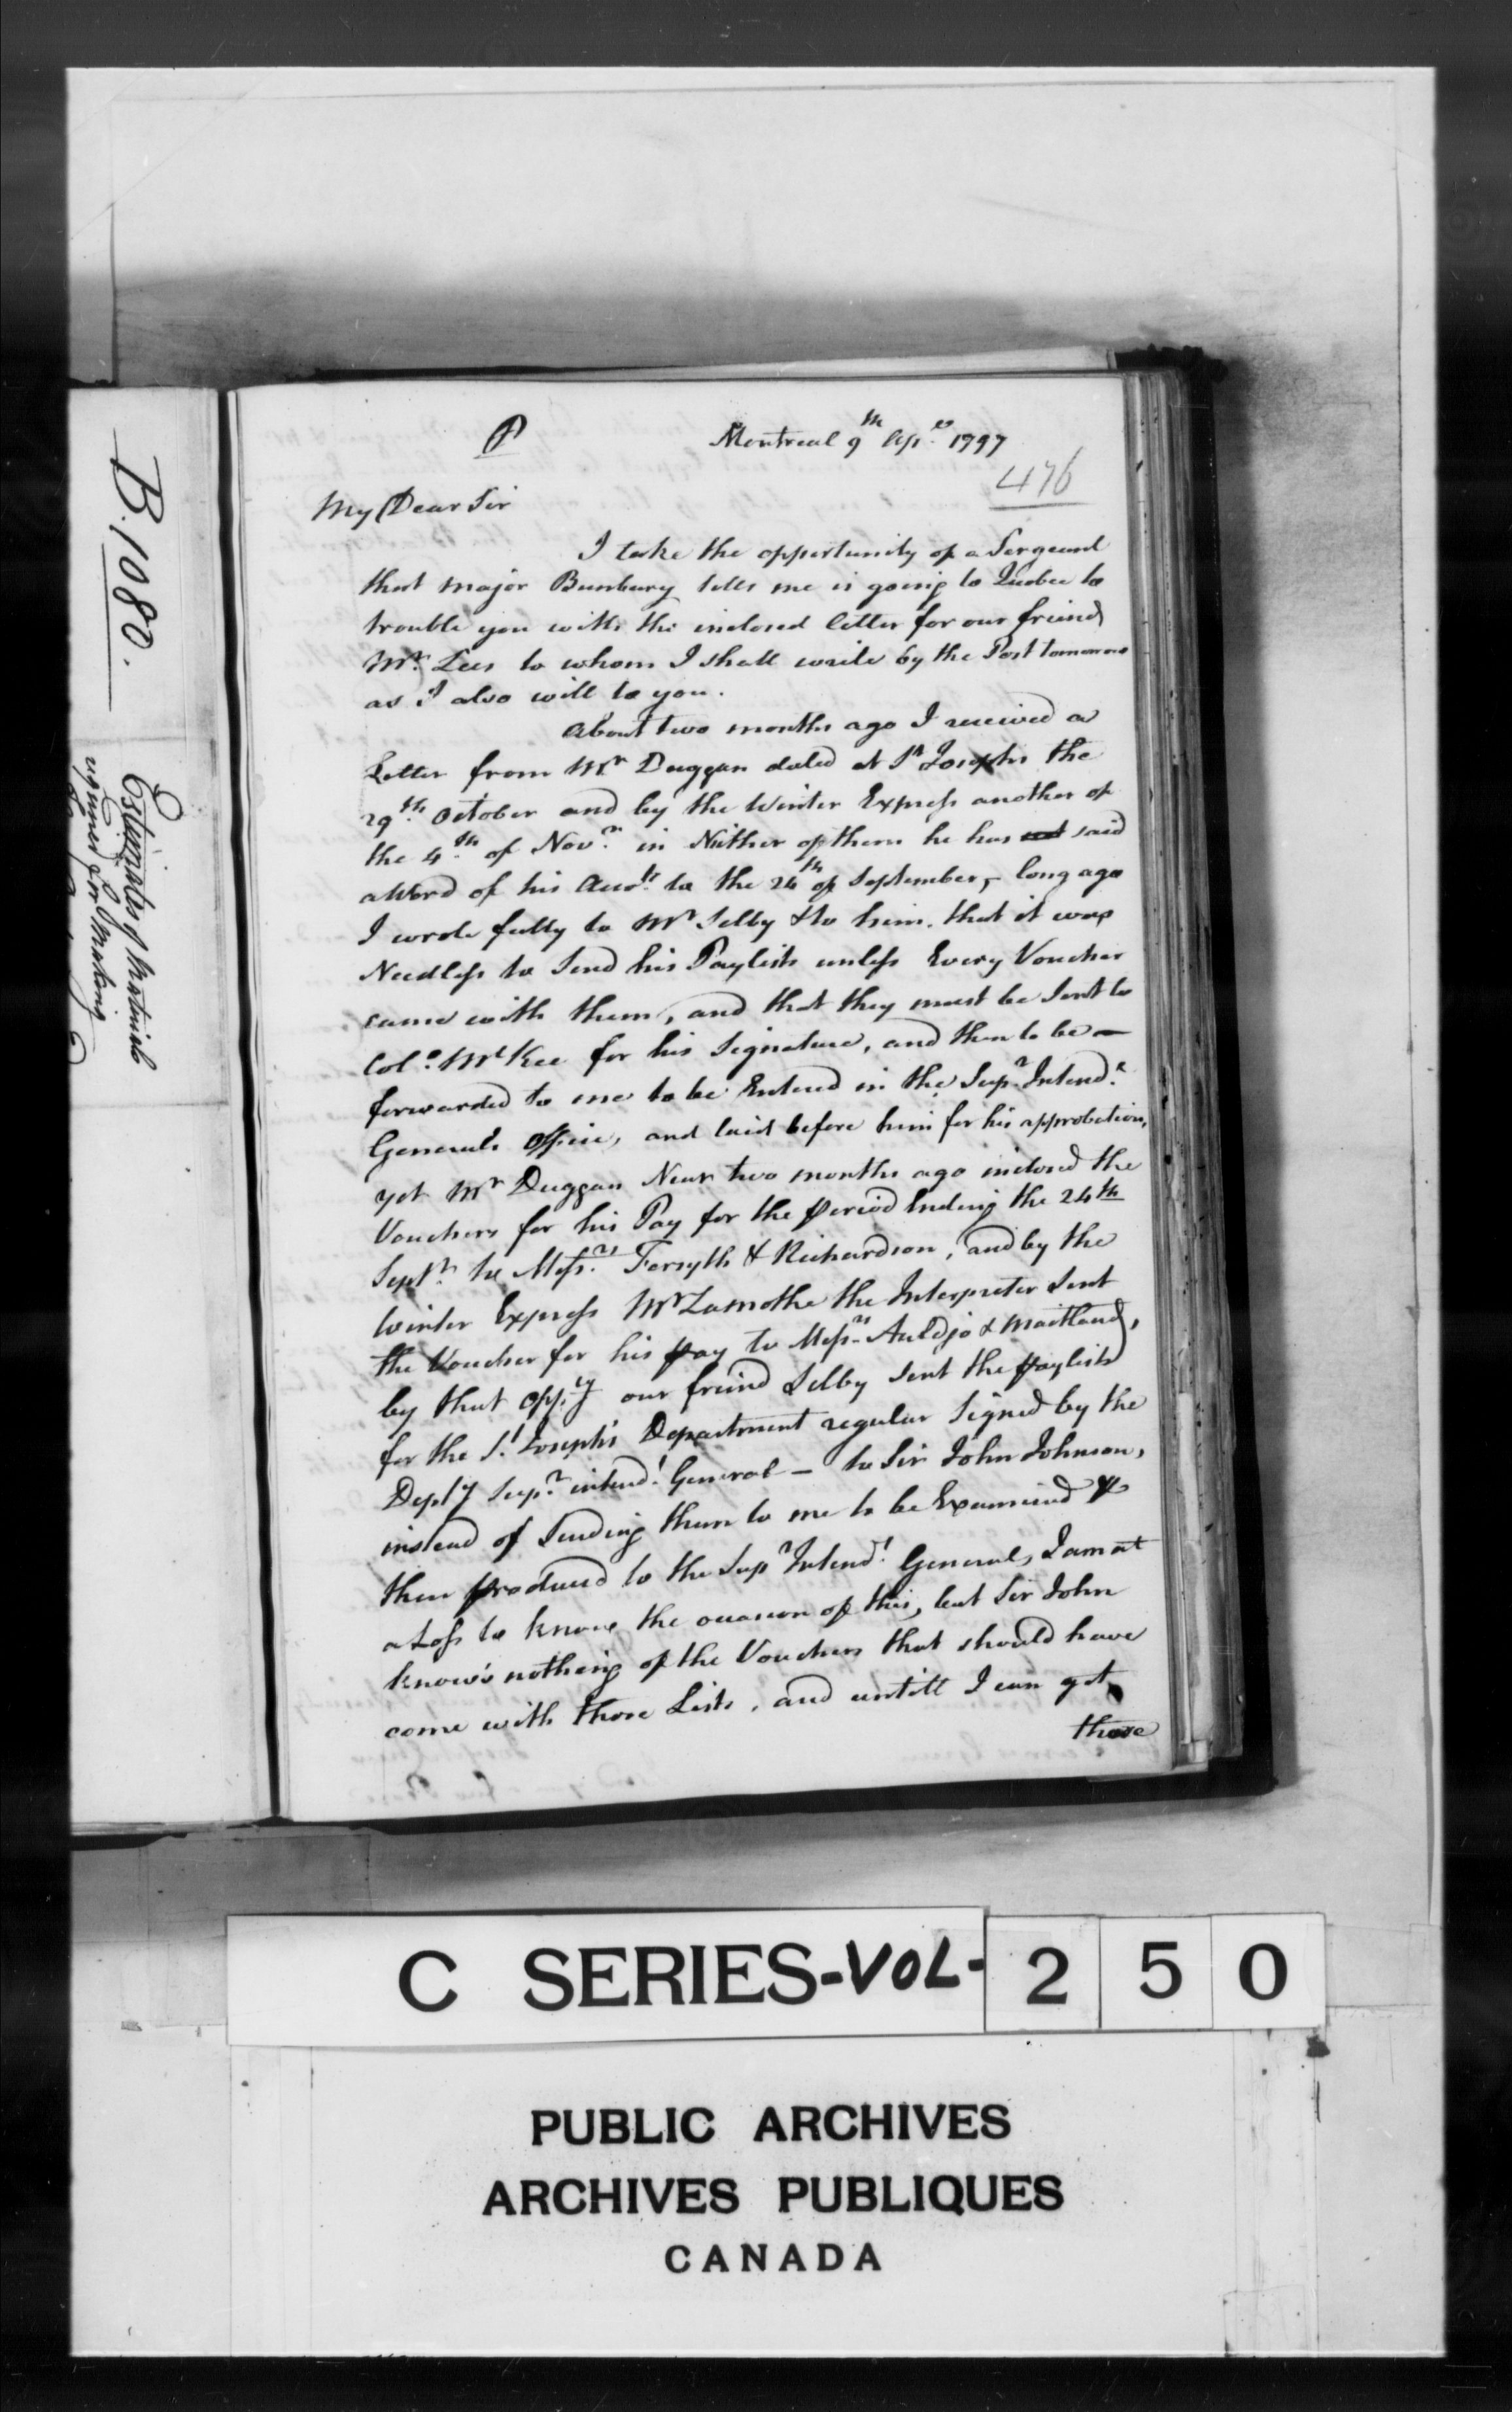 P
Montreal 9th Apl. 1797
476
My Dear Sir
I take the opportunity of a Sergeant
that Major Bunbury tells me is going to Quebec to
trouble you with the inclosed letter for our friend
Mr. Lees to whom I shall write by the Post tomorrow
as I also will to you.
About two months ago I received a
Letter from Mr Duggan dated at St Josephs the
29th. October and by the Winter Express another of
the 4th. of Novr. in Neither of them he has not said
a Word of his Accots. to the 24th of September, long ago
I wrote fully to Mr Selby & to him. that it was
Needless to Send his Paylists unless Every Voucher
came with them, and that they must be Sent to
Colo. McKee for his Signature, and then to be —
forwarded to me to be Entered in the Supr. Intendt.
Generals Office, and laid before him for his approbation,
yet Mr Duggan Near two months ago inclosed the
Vouchers for his Pay for the period Ending the 24th
Septr. to Messrs. Forsyth & Richardson, and by the
Winter Express Mr Lamothe the Interpreter Sent
the Voucher for his pay to Messrs. Auldjo & Maitland,
by that oppty. our friend Selby Sent the paylists
for the St. Joseph's Department regular Signed by the
Depty Supr. intendt. General — to Sir John Johnson,
instead of Sending them to me to be Examined &
then produced to the Supr. Intendt. General, I am at
a Loss to know the occasion of this, but Sir John
know's nothing of the Vouchers that should have
come with those Lists, and untill I can get
those
B.1080.
Estimates of Materials
required for Making
C SERIES-VOL-250
PUBLIC ARCHIVES
ARCHIVES PUBLIQUES
CANADA